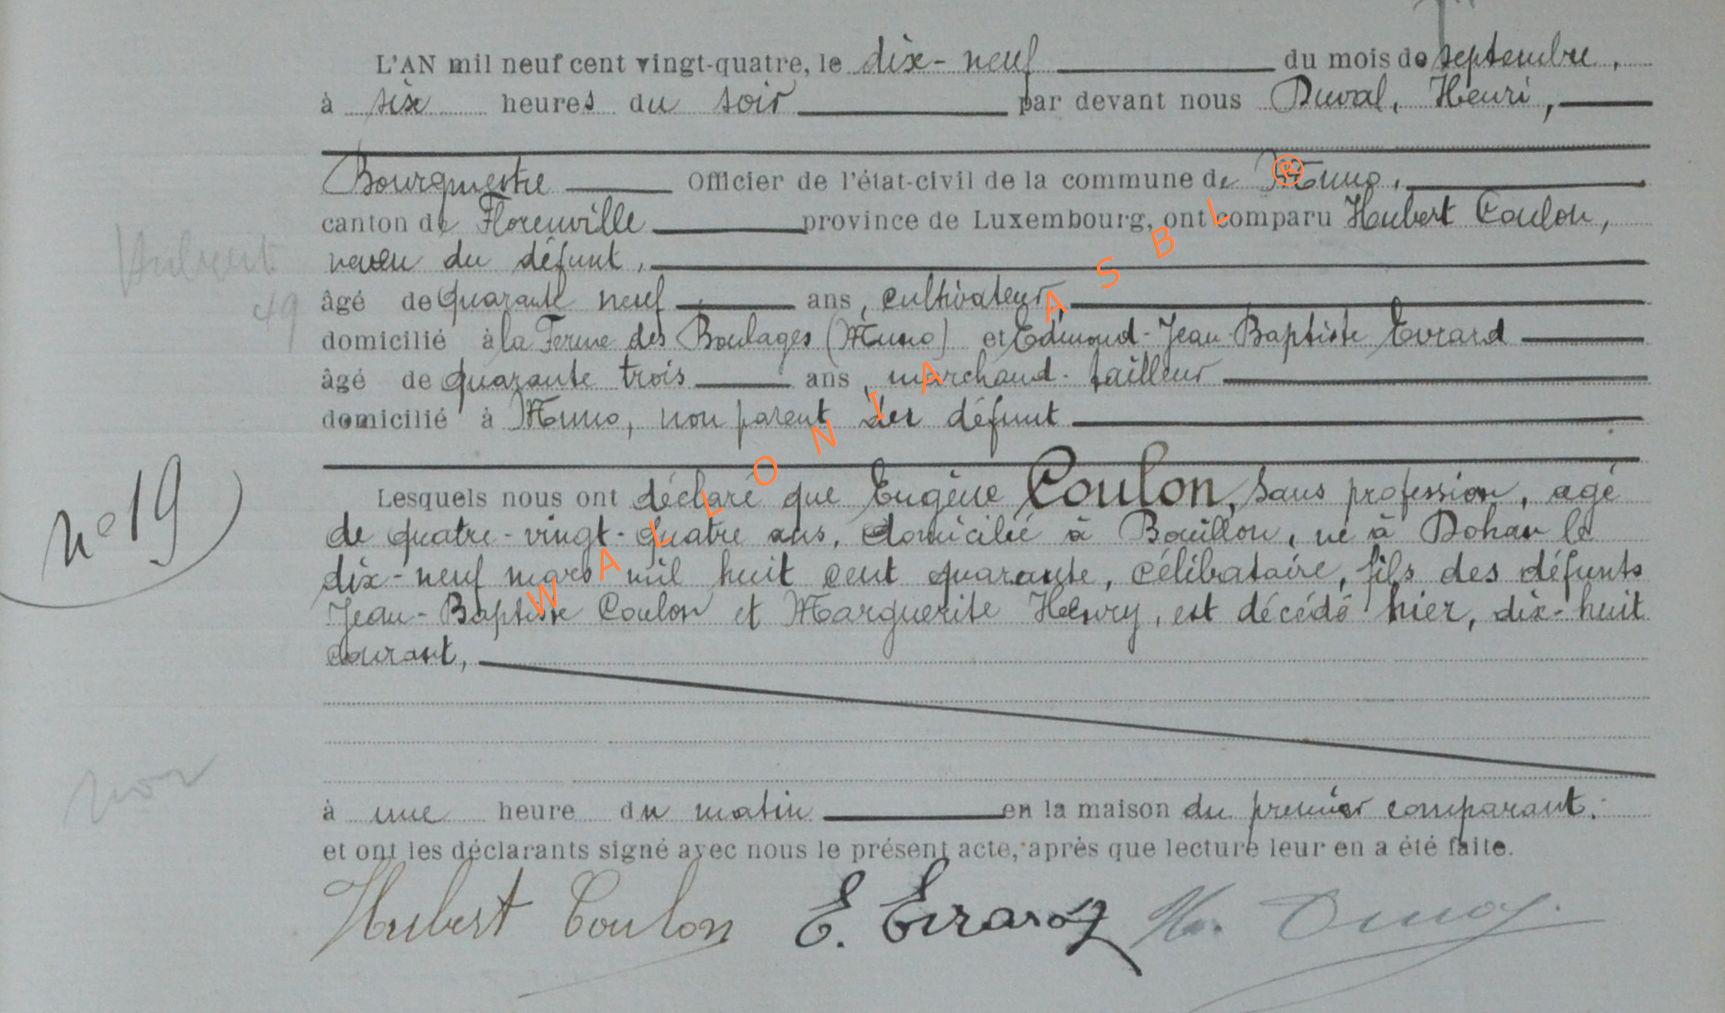 L'AN mil neuf cent vingt-quatre, le dix-neuf du mois de septembre,
à six heures du soir par devant nous Duval, Henri,
Bourgmestre Officier de l'état-civil de la commune de Muno,
canton de Florenville province de Luxembourg, ont comparu Hubert Coulon,
neveu du défunt,
Hubert
âgé de quarante neuf ans, cultivateur,
49
domicilié à la Ferme des Boulages (Muno) et Edmond-Jean-Baptiste Evrard
âgé de quarante trois ans, marchand-tailleur
domicilié à Muno, non parent du défunt
n° 19
Lesquels nous ont déclaré que Eugène Coulon, sans profession, agé
de quatre-vingt-quatre ans, domicilié à Bouillon, né à Dohan le
dix-neuf mars mil huit cent quarante, célibataire, fils des défunts
Jean-Baptiste Coulon et Marguerite Henry, est décédé hier, dix-huit
courant,
non
à une heure du matin en la maison du premier comparant.
et ont les déclarants signé avec nous le présent acte, après que lecture leur en a été faite.
Hubert Coulon E. Evrard H. Duval
WALLONIA ASBL ®